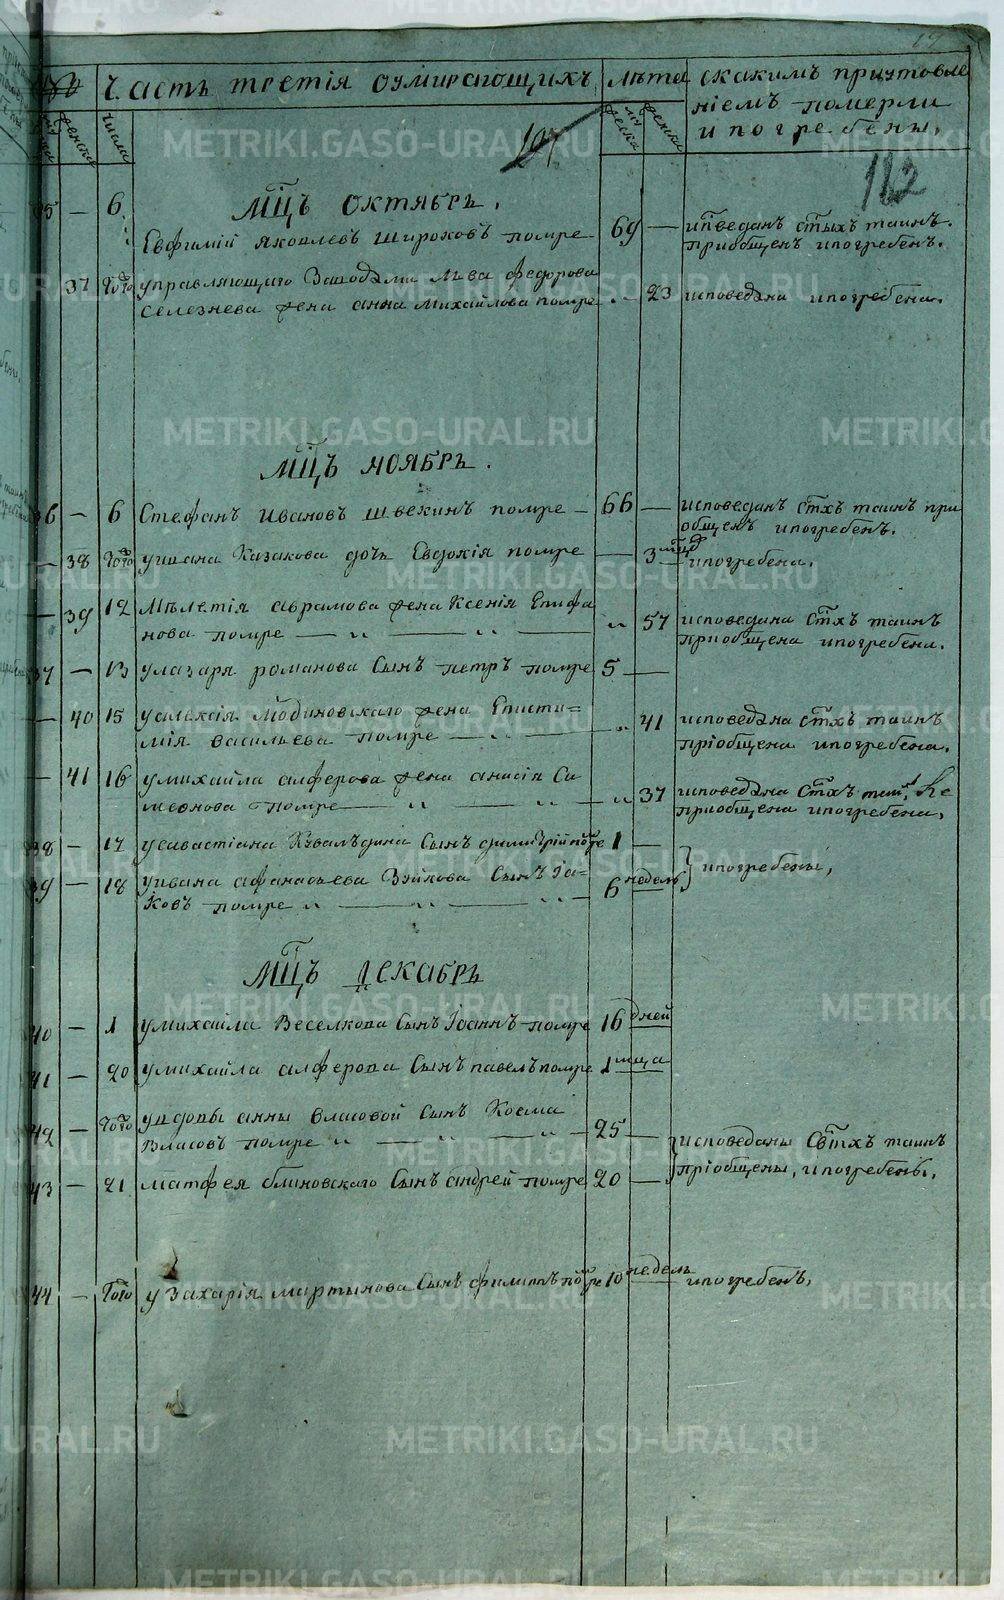 Часть третія оумирающихъ
лѣта
скакимъ приутовле
ніемъ померли
и погребены,
числа
женска
197
112
Мцъ октябрь.
35 — 6
Евфимій Яковлевъ Широховъ помре 69 —
исповеданъ стыхъ таинъ
приобщенъ ипогребенъ.
37 Того управляющаго Заводами Льва Федорова
Селезнева жена анна михайлова помре 23 исповедана ипогребена.
Мцъ ноябрь.
36 — 6 Стефанъ Ивановъ Швекинъ помре — 66 —
исповеданъ стхъ таинъ при
общенъ ипогребенъ.
— 38 Того уивана Казакова дочь Евдокія помре — 3 мцд ипогребена.
— 39 12 Мѣлетія аврамова жена Ксенія Епифа
нова помре — „ — „ — „ 57
исповедана стхъ таинъ
приобщена ипогребена.
37 — 13 улазаря романова Сынъ петръ помре 5 —
— 40 15 уалексія Людиновскаго жена Еписти=
мія васильева помре — „ — „ 41
исповедана стхъ таинъ
пріобщена ипогребена.
— 41 16 умихайла алферова жена анисія Си
меонова помре — „ — „ — „ 37
исповедана стхъ таинъ, не
приобщена ипогребена,
38 — 17 усавастіана Кувалъдина Сынъ димитрій помре 1 —
39 — 18 уивана афанасьева Зуйкова Сынъ Іа=
ковъ помре „ — „ — 6 недель
ипогребены,
Мцъ декабрь
40 — 1 умихайла Веселкова Сынъ Іоаннъ помре 16 дней
41 — 20 умихайла алферова Сынъ павелъ помре 1 мца
42 — Того увдовы анны власовой Сынъ Косма
Власовъ помре „ — „ — „ 25 —
исповеданы Свтхъ таинъ
пріобщены, ипогребены,
43 — 21 матфея блиновскаго Сынъ андрей помре 20 —
44 — Того у Захарія мартынова Сынъ филиппъ помре 10 недель ипогребенъ,
METRIKI.GASO-URAL.RU